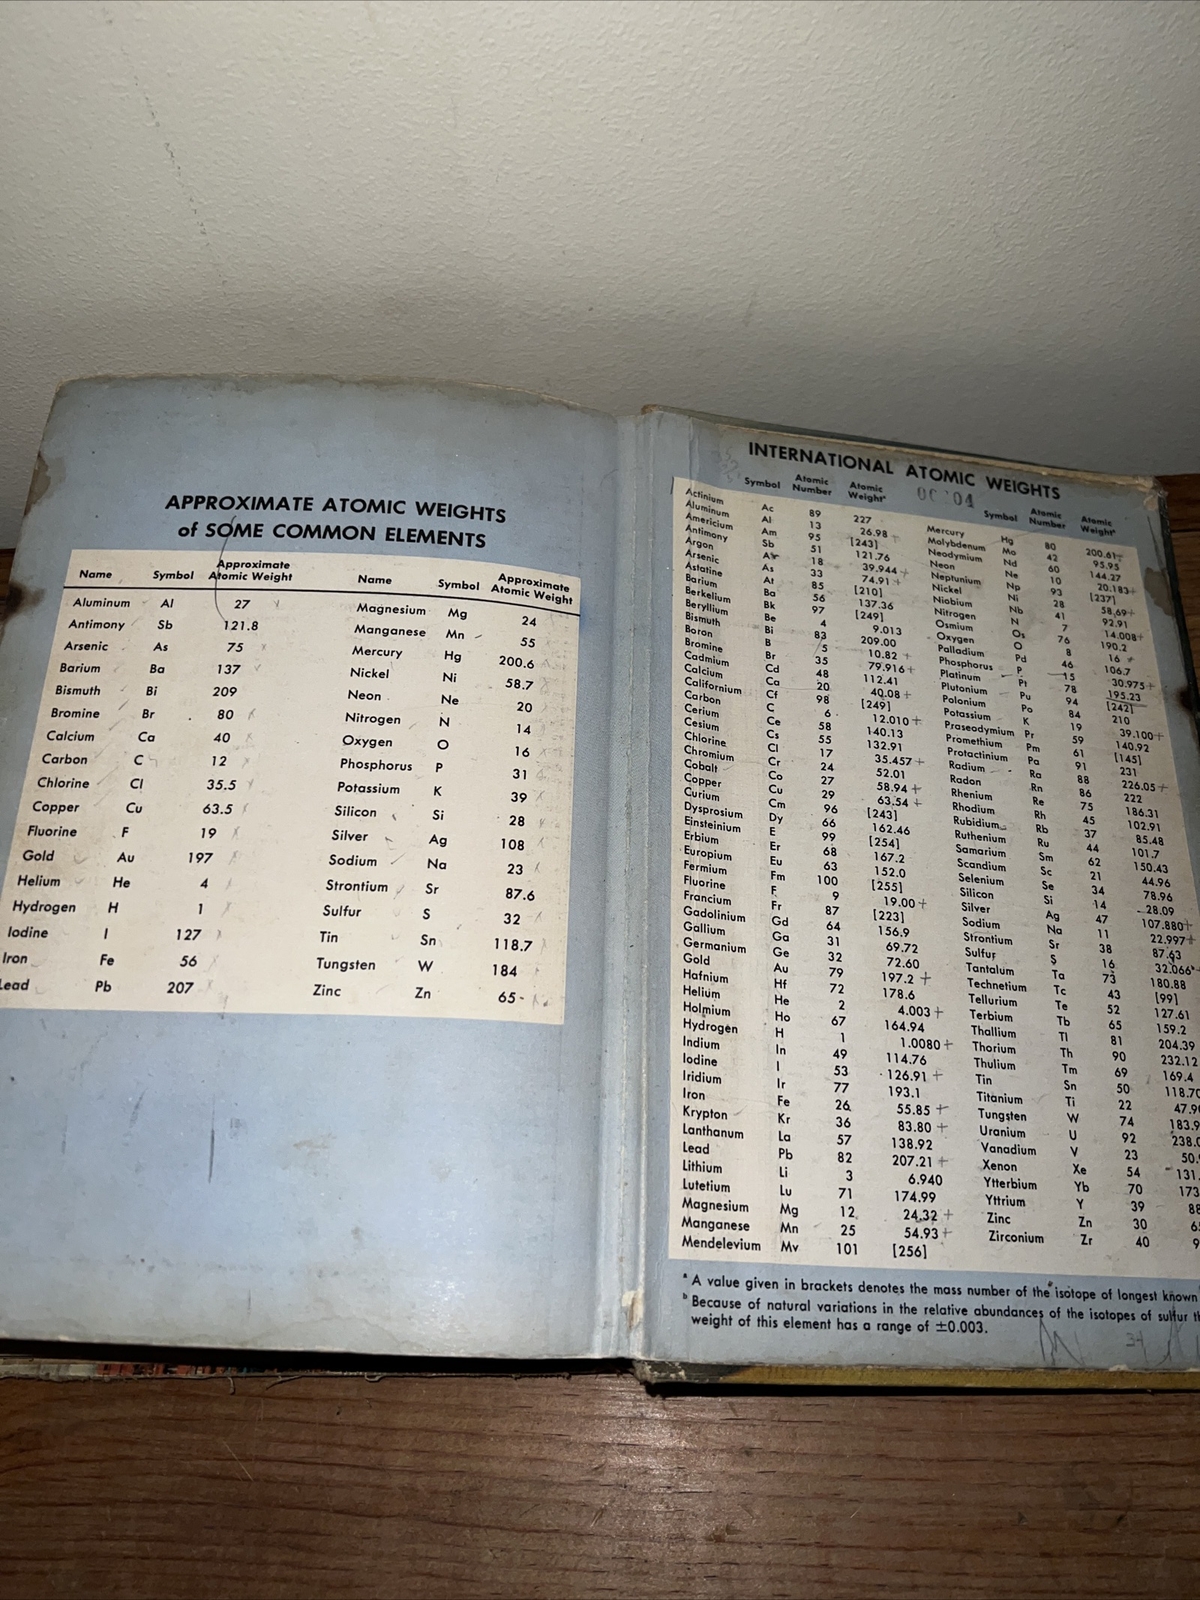 APPROXIMATE ATOMIC WEIGHTS
of SOME COMMON ELEMENTS
Name Symbol Approximate Atomic Weight Name Symbol Approximate Atomic Weight
Aluminum Al 27 Magnesium Mg 24
Antimony Sb 121.8 Manganese Mn 55
Arsenic As 75 Mercury Hg 200.6
Barium Ba 137 Nickel Ni 58.7
Bismuth Bi 209 Neon Ne 20
Bromine Br 80 Nitrogen N 14
Calcium Ca 40 Oxygen O 16
Carbon C 12 Phosphorus P 31
Chlorine Cl 35.5 Potassium K 39
Copper Cu 63.5 Silicon Si 28
Fluorine F 19 Silver Ag 108
Gold Au 197 Sodium Na 23
Helium He 4 Strontium Sr 87.6
Hydrogen H 1 Sulfur S 32
Iodine I 127 Tin Sn 118.7
Iron Fe 56 Tungsten W 184
Lead Pb 207 Zinc Zn 65
INTERNATIONAL ATOMIC WEIGHTS
Symbol Atomic Number Atomic Weightᵃ Symbol Atomic Number Atomic Weightᵃ
Actinium Ac 89 227 Mercury Hg 80 200.61
Aluminum Al 13 26.98 Molybdenum Mo 42 95.95
Americium Am 95 [243] Neodymium Nd 60 144.27
Antimony Sb 51 121.76 Neon Ne 10 20.183
Argon A 18 39.944 Neptunium Np 93 [237]
Arsenic As 33 74.91 Nickel Ni 28 58.69
Astatine At 85 [210] Niobium Nb 41 92.91
Barium Ba 56 137.36 Nitrogen N 7 14.008
Berkelium Bk 97 [249] Osmium Os 76 190.2
Beryllium Be 4 9.013 Oxygen O 8 16
Bismuth Bi 83 209.00 Palladium Pd 46 106.7
Boron B 5 10.82 Phosphorus P 15 30.975
Bromine Br 35 79.916 Platinum Pt 78 195.23
Cadmium Cd 48 112.41 Plutonium Pu 94 [242]
Calcium Ca 20 40.08 Polonium Po 84 210
Californium Cf 98 [249] Potassium K 19 39.100
Carbon C 6 12.010 Praseodymium Pr 59 140.92
Cerium Ce 58 140.13 Promethium Pm 61 [145]
Cesium Cs 55 132.91 Protactinium Pa 91 231
Chlorine Cl 17 35.457 Radium Ra 88 226.05
Chromium Cr 24 52.01 Radon Rn 86 222
Cobalt Co 27 58.94 Rhenium Re 75 186.31
Copper Cu 29 63.54 Rhodium Rh 45 102.91
Curium Cm 96 [243] Rubidium Rb 37 85.48
Dysprosium Dy 66 162.46 Ruthenium Ru 44 101.7
Einsteinium E 99 [254] Samarium Sm 62 150.43
Erbium Er 68 167.2 Scandium Sc 21 44.96
Europium Eu 63 152.0 Selenium Se 34 78.96
Fermium Fm 100 [255] Silicon Si 14 28.09
Fluorine F 9 19.00 Silver Ag 47 107.880
Francium Fr 87 [223] Sodium Na 11 22.997
Gadolinium Gd 64 156.9 Strontium Sr 38 87.63
Gallium Ga 31 69.72 Sulfur S 16 32.066ᵇ
Germanium Ge 32 72.60 Tantalum Ta 73 180.88
Gold Au 79 197.2 Technetium Tc 43 [99]
Hafnium Hf 72 178.6 Tellurium Te 52 127.61
Helium He 2 4.003 Terbium Tb 65 159.2
Holmium Ho 67 164.94 Thallium Tl 81 204.39
Hydrogen H 1 1.0080 Thorium Th 90 232.12
Indium In 49 114.76 Thulium Tm 69 169.4
Iodine I 53 126.91 Tin Sn 50 118.70
Iridium Ir 77 193.1 Titanium Ti 22 47.9
Iron Fe 26 55.85 Tungsten W 74 183.9
Krypton Kr 36 83.80 Uranium U 92 238.0
Lanthanum La 57 138.92 Vanadium V 23 50.
Lead Pb 82 207.21 Xenon Xe 54 131.
Lithium Li 3 6.940 Ytterbium Yb 70 173
Lutetium Lu 71 174.99 Yttrium Y 39 88
Magnesium Mg 12 24.32 Zinc Zn 30 6
Manganese Mn 25 54.93 Zirconium Zr 40 9
Mendelevium Mv 101 [256]
ᵃ A value given in brackets denotes the mass number of the isotope of longest known
ᵇ Because of natural variations in the relative abundances of the isotopes of sulfur th
weight of this element has a range of ±0.003.
34